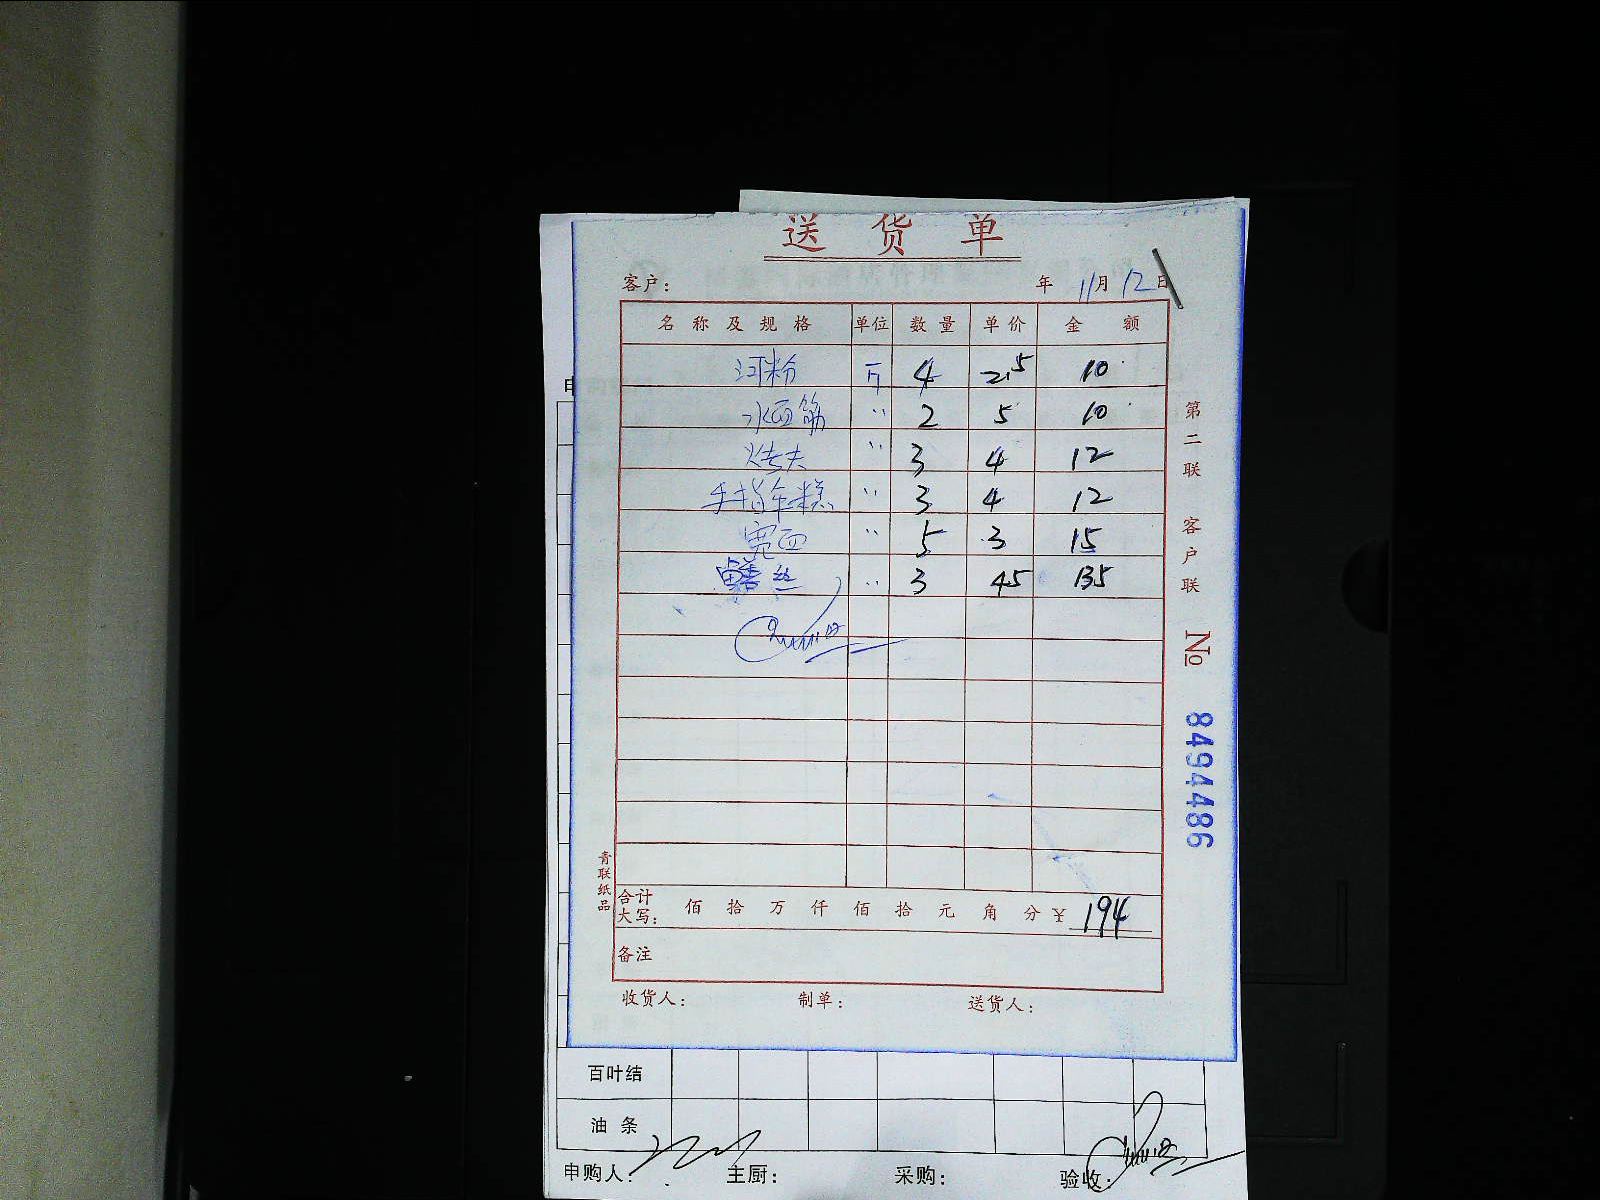 送 货 单
客户： 年 11月 12日
名 称 及 规 格 单位 数 量 单 价 金 额
河粉 斤 4 2.5 10
水面筋 〃 2 5 10
烤夫 〃 3 4 12
手指年糕 〃 3 4 12
宽面 〃 5 3 15
鳝丝 〃 3 45 135
合计
大写： 佰 拾 万 仟 佰 拾 元 角 分 ¥ 194
备注
收货人： 制单： 送货人：
第二联 客户联 No 8494486
青联纸品
申
百叶结
油 条
申购人： 主厨： 采购： 验收：